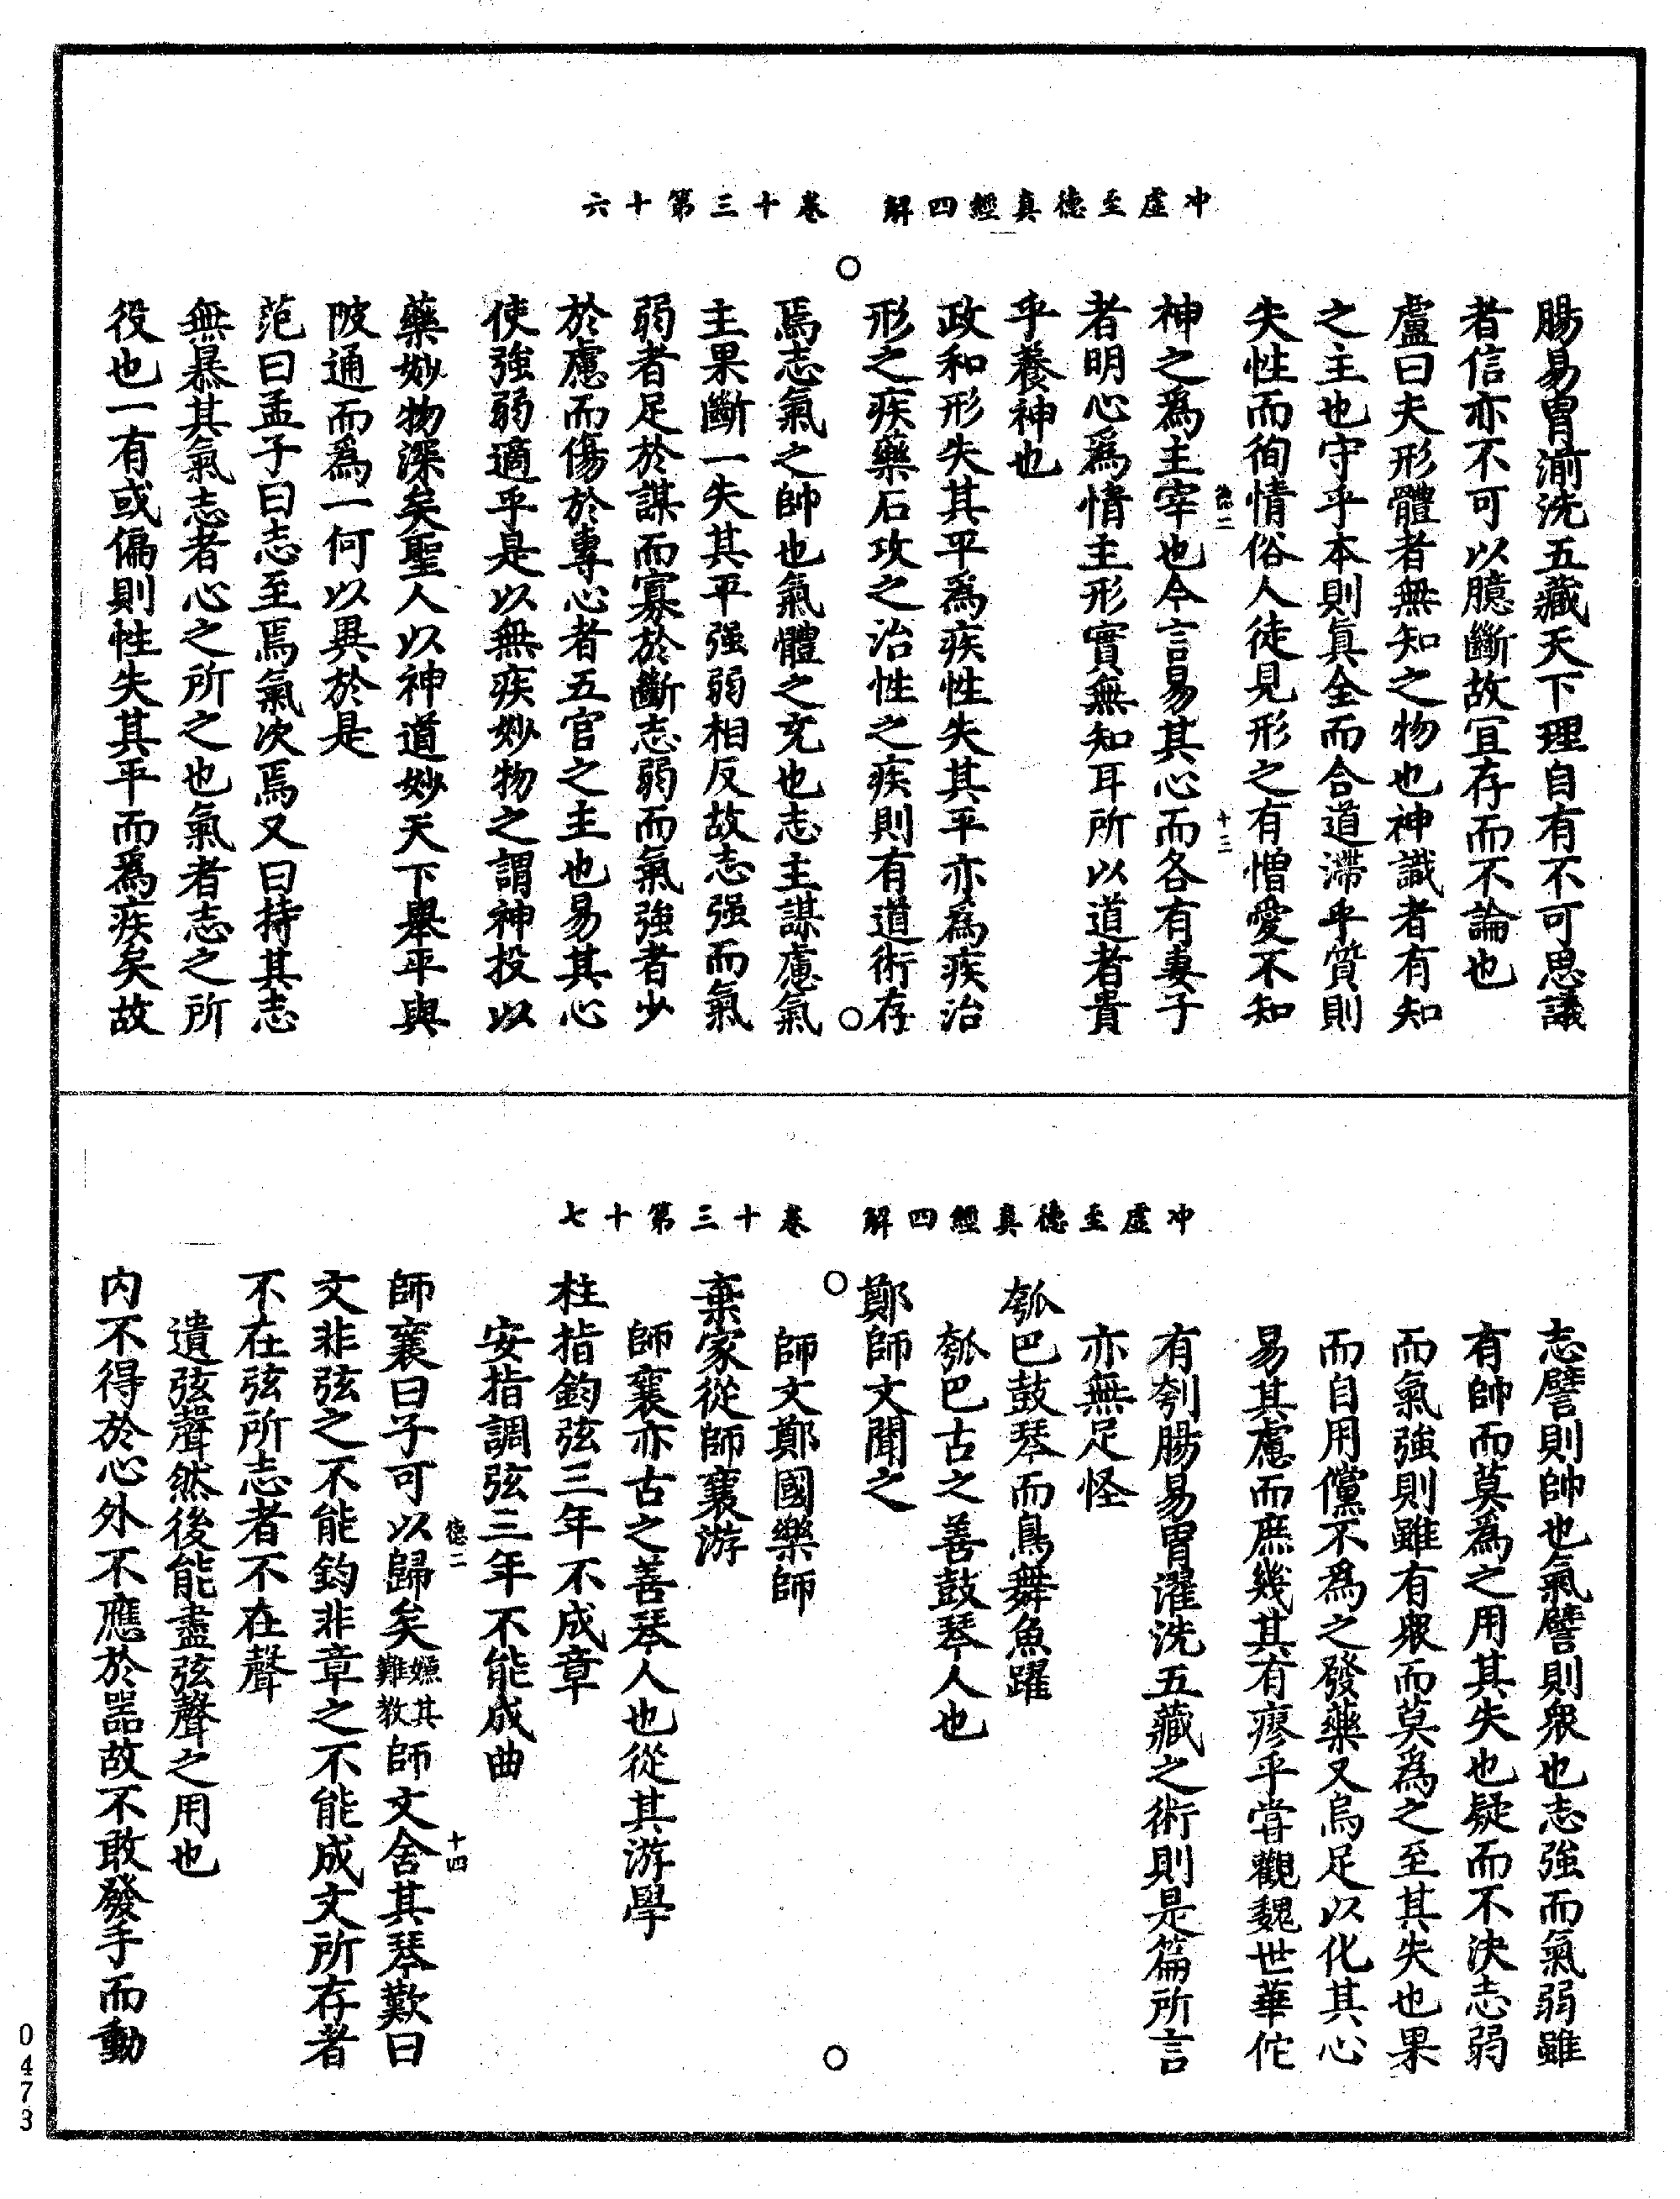 冲虛至德真經四解　卷十三第十六
腸易胃湔洗五藏天下理自有不可思議
者信亦不可以臆斷故冝存而不論也
盧曰夫形體者無知之物也神識者有知
之主也守乎本則真全而合道滯乎質則
失性而徇情俗人徒見形之有憎愛不知
德二　十三
神之爲主宰也今言易其心而各有妻子
者明心爲情主形實無知耳所以道者貴
乎養神也
政和形失其平爲疾性失其平亦爲疾治
形之疾藥石攻之治性之疾則有道術存
焉志氣之帥也氣體之充也志主謀慮氣
主果斷一失其平强弱相反故志强而氣
弱者足於謀而寡於斷志弱而氣強者少
於慮而傷於專心者五官之主也易其心
使強弱適乎是以無疾妙物之謂神投以
藥妙物深矣聖人以神道妙天下舉平與
陂通而爲一何以異於是
范曰孟子曰志至焉氣次焉又曰持其志
無暴其氣志者心之所之也氣者志之所
役也一有或偏則性失其平而爲疾矣故
冲虛至德真經四解　卷十三第十七
志譬則帥也氣譬則衆也志強而氣弱雖
有帥而莫爲之用其失也疑而不決志弱
而氣強則雖有衆而莫爲之至其失也果
而自用儻不爲之發藥又烏足以化其心
易其慮而庶幾其有瘳乎甞觀魏世華佗
有刳腸易胃濯洗五藏之術則是篇所言
亦無足怪
瓠巴鼓琴而鳥舞魚躍
瓠巴古之善鼓琴人也
鄭師文聞之
師文鄭國樂師
棄家從師襄游
師襄亦古之善琴人也從其游學
柱指鈞弦三年不成章
安指調弦三年不能成曲
德二　十四
師襄曰子可以歸矣嫌其難教師文舍其琴歎曰
文非弦之不能鈞非章之不能成文所存者
不在弦所志者不在聲
遺弦聲然後能盡弦聲之用也
内不得於心外不應於噐故不敢發手而動
0473